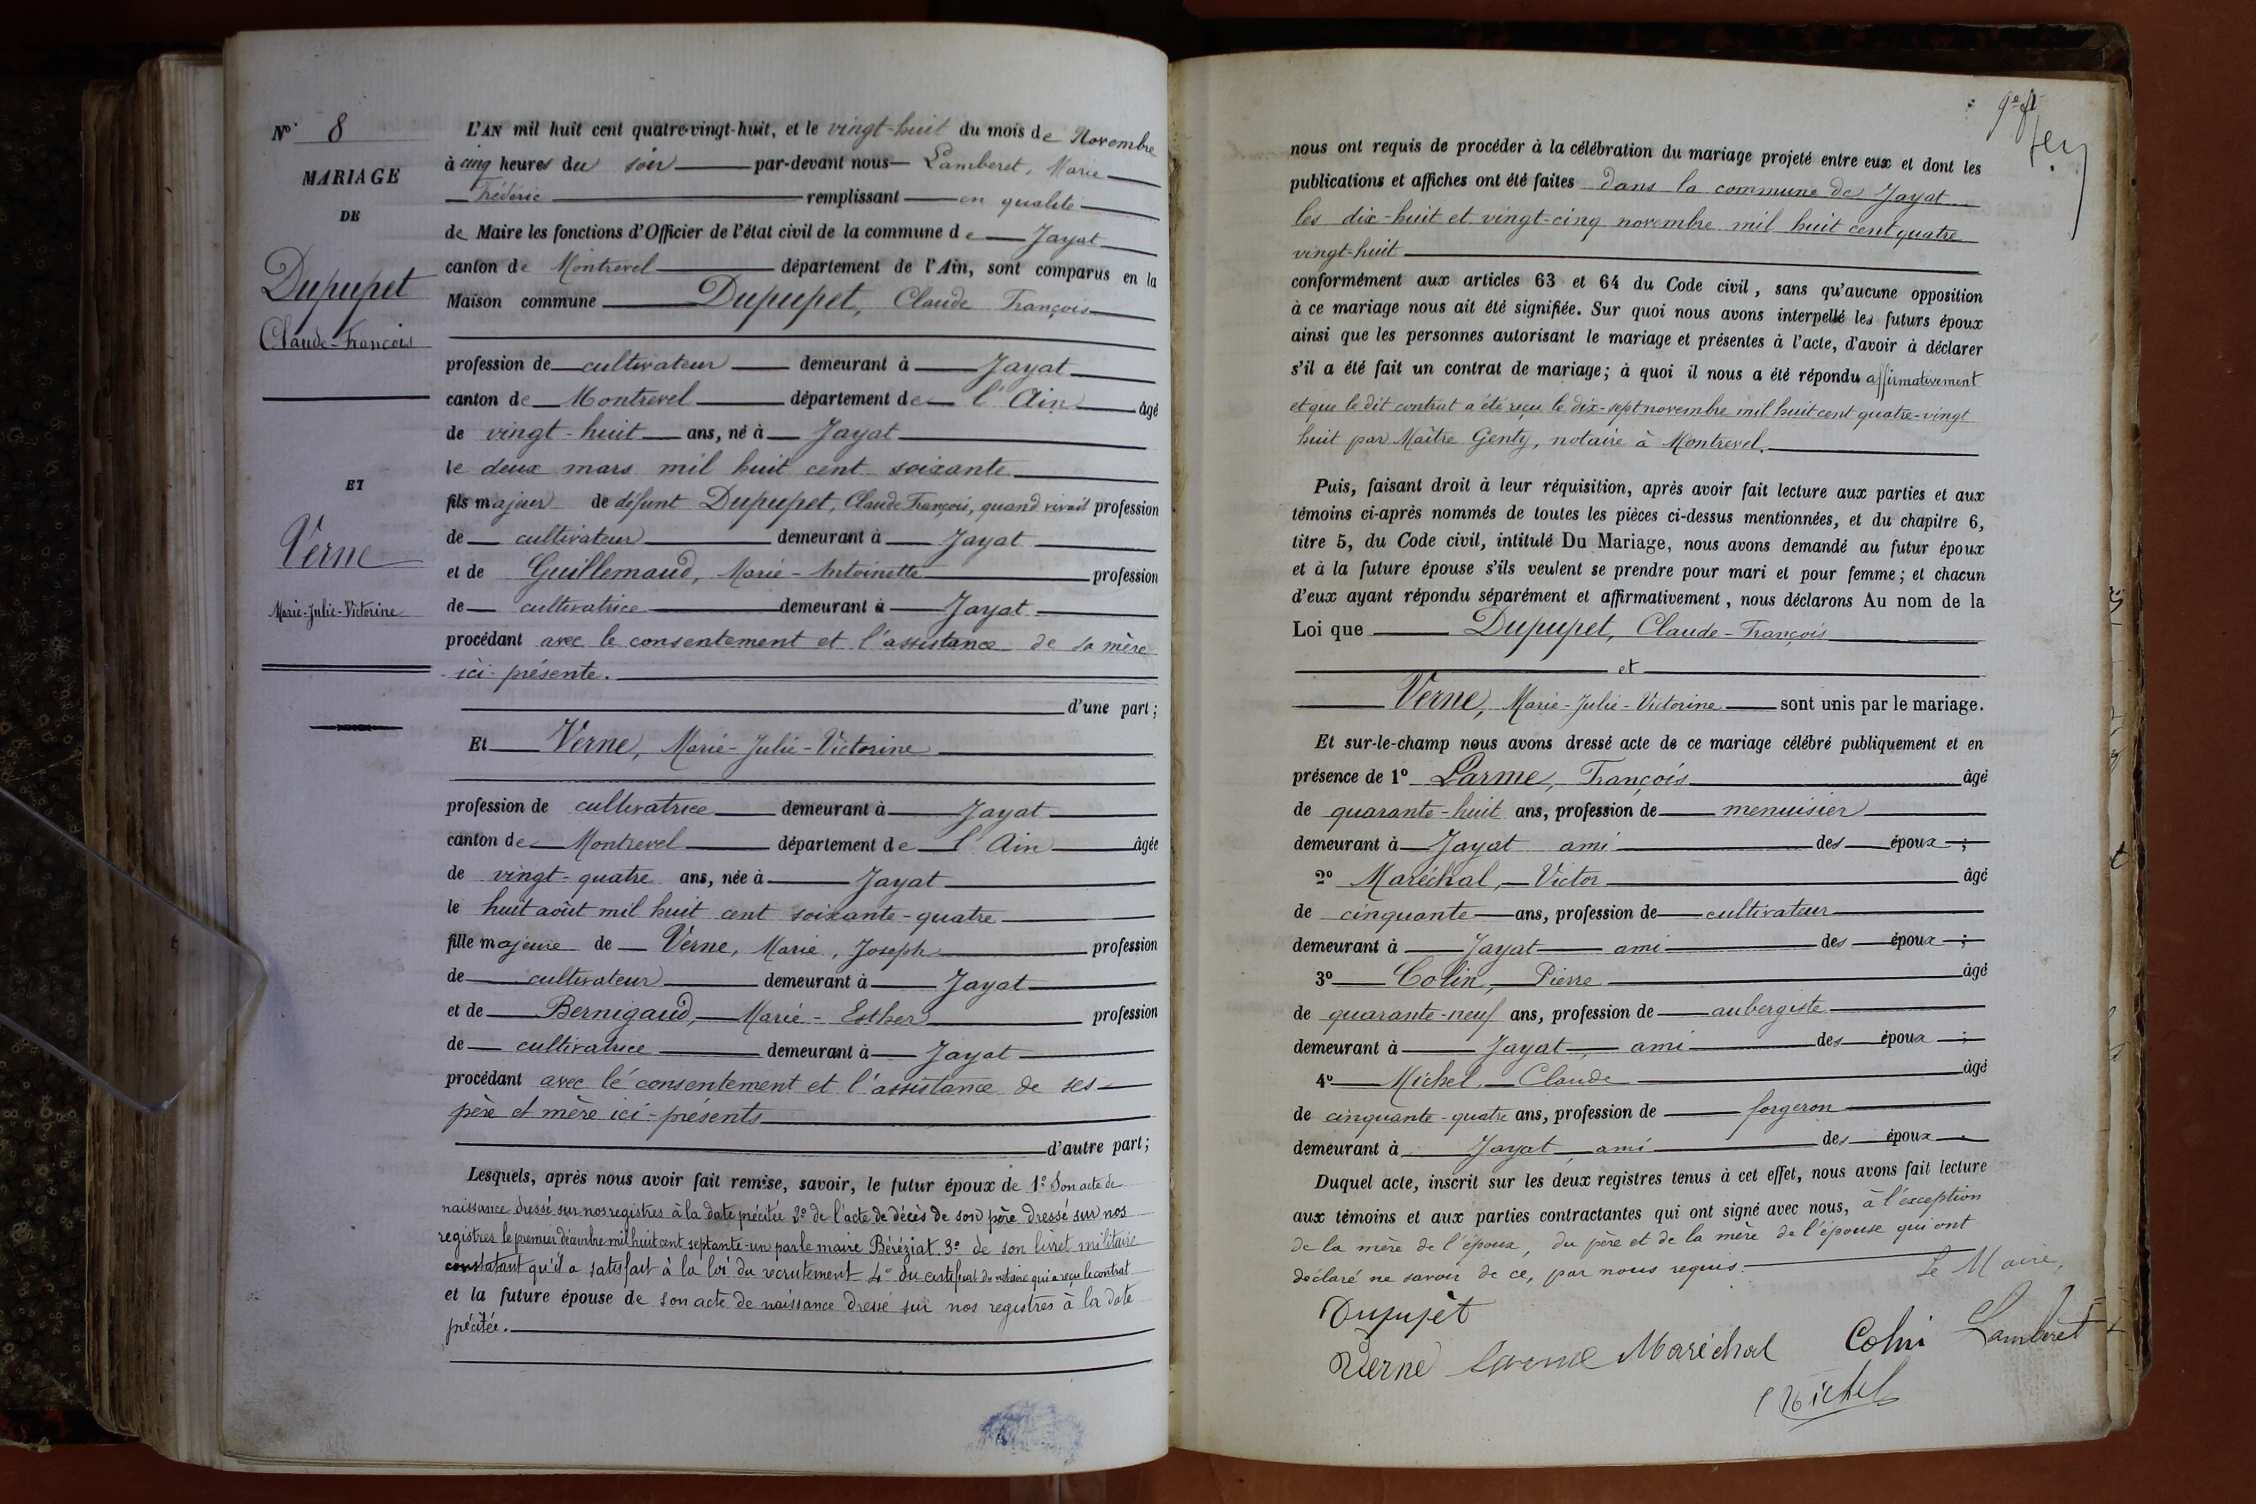 N° 8
MARIAGE
DE
Dupupet
Claude-François
ET
Verne
Marie-Julie-Victorine
L'AN mil huit cent quatre-vingt-huit, et le vingt-huit du mois de Novembre
à cinq heures du soir par-devant nous Lamberet, Marie
Frédéric remplissant en qualité
de Maire les fonctions d'Officier de l'état civil de la commune de Jayat
canton de Montrevel département de l'Ain, sont comparus en la
Maison commune Dupupet, Claude François
profession de cultivateur demeurant à Jayat
canton de Montrevel département de l'Ain âgé
de vingt-huit ans, né à Jayat
le deux mars mil huit cent soixante
fils majeur de défunt Dupupet, Claude François, quand vivait profession
de cultivateur demeurant à Jayat
et de Guillemaud, Marie-Antoinette profession
de cultivatrice demeurant à Jayat
procédant avec le consentement et l'assistance de sa mère
ici présente.
d'une part;
Et Verne, Marie-Julie-Victorine
profession de cultivatrice demeurant à Jayat
canton de Montrevel département de l'Ain âgée
de vingt-quatre ans, née à Jayat
le huit août mil huit cent soixante-quatre
fille majeure de Verne, Marie, Joseph profession
de cultivateur demeurant à Jayat
et de Bernigaud, Marie-Esther profession
de cultivatrice demeurant à Jayat
procédant avec le consentement et l'assistance de ses
père et mère ici-présents
d'autre part;
Lesquels, après nous avoir fait remise, savoir, le futur époux de 1° Son acte de
naissance dressé sur nos registres à la date précitée 2° de l'acte de décès de son père dressé sur nos
registres le premier décembre mil huit cent septante-un par le maire Béréziat. 3° de son livret militaire
constatant qu'il a satisfait à la loi du recrutement 4° du certificat du notaire qui a reçu le contrat
et la future épouse de son acte de naissance dressé sur nos registres à la date
précitée.
nous ont requis de procéder à la célébration du mariage projeté entre eux et dont les
publications et affiches ont été faites dans la commune de Jayat
les dix-huit et vingt-cinq novembre mil huit cent quatre
vingt-huit
conformément aux articles 63 et 64 du Code civil, sans qu'aucune opposition
à ce mariage nous ait été signifiée. Sur quoi nous avons interpellé les futurs époux
ainsi que les personnes autorisant le mariage et présentes à l'acte, d'avoir à déclarer
s'il a été fait un contrat de mariage; à quoi il nous a été répondu affirmativement
et que le dit contrat a été reçu le dix-sept novembre mil huit cent quatre-vingt
huit par Maître Genty, notaire à Montrevel.
Puis, faisant droit à leur réquisition, après avoir fait lecture aux parties et aux
témoins ci-après nommés de toutes les pièces ci-dessus mentionnées, et du chapitre 6,
titre 5, du Code civil, intitulé Du Mariage, nous avons demandé au futur époux
et à la future épouse s'ils veulent se prendre pour mari et pour femme; et chacun
d'eux ayant répondu séparément et affirmativement, nous déclarons Au nom de la
Loi que Dupupet, Claude-François
et
Verne, Marie-Julie-Victorine sont unis par le mariage.
Et sur-le-champ nous avons dressé acte de ce mariage célébré publiquement et en
présence de 1° Larme, François âgé
de quarante-huit ans, profession de menuisier
demeurant à Jayat ami des époux;
2° Maréchal, Victor âgé
de cinquante ans, profession de cultivateur
demeurant à Jayat ami des époux;
3° Colin, Pierre âgé
de quarante-neuf ans, profession de aubergiste
demeurant à Jayat, ami des époux;
4° Michel, Claude âgé
de cinquante-quatre ans, profession de forgeron
demeurant à Jayat, ami des époux.
Duquel acte, inscrit sur les deux registres tenus à cet effet, nous avons fait lecture
aux témoins et aux parties contractantes qui ont signé avec nous, à l'exception
de la mère de l'époux, du père et de la mère de l'épouse qui ont
déclaré ne savoir de ce, par nous requis. Le Maire,
Dupupet
Verne Larme Maréchal Colin Lamberet
Michel